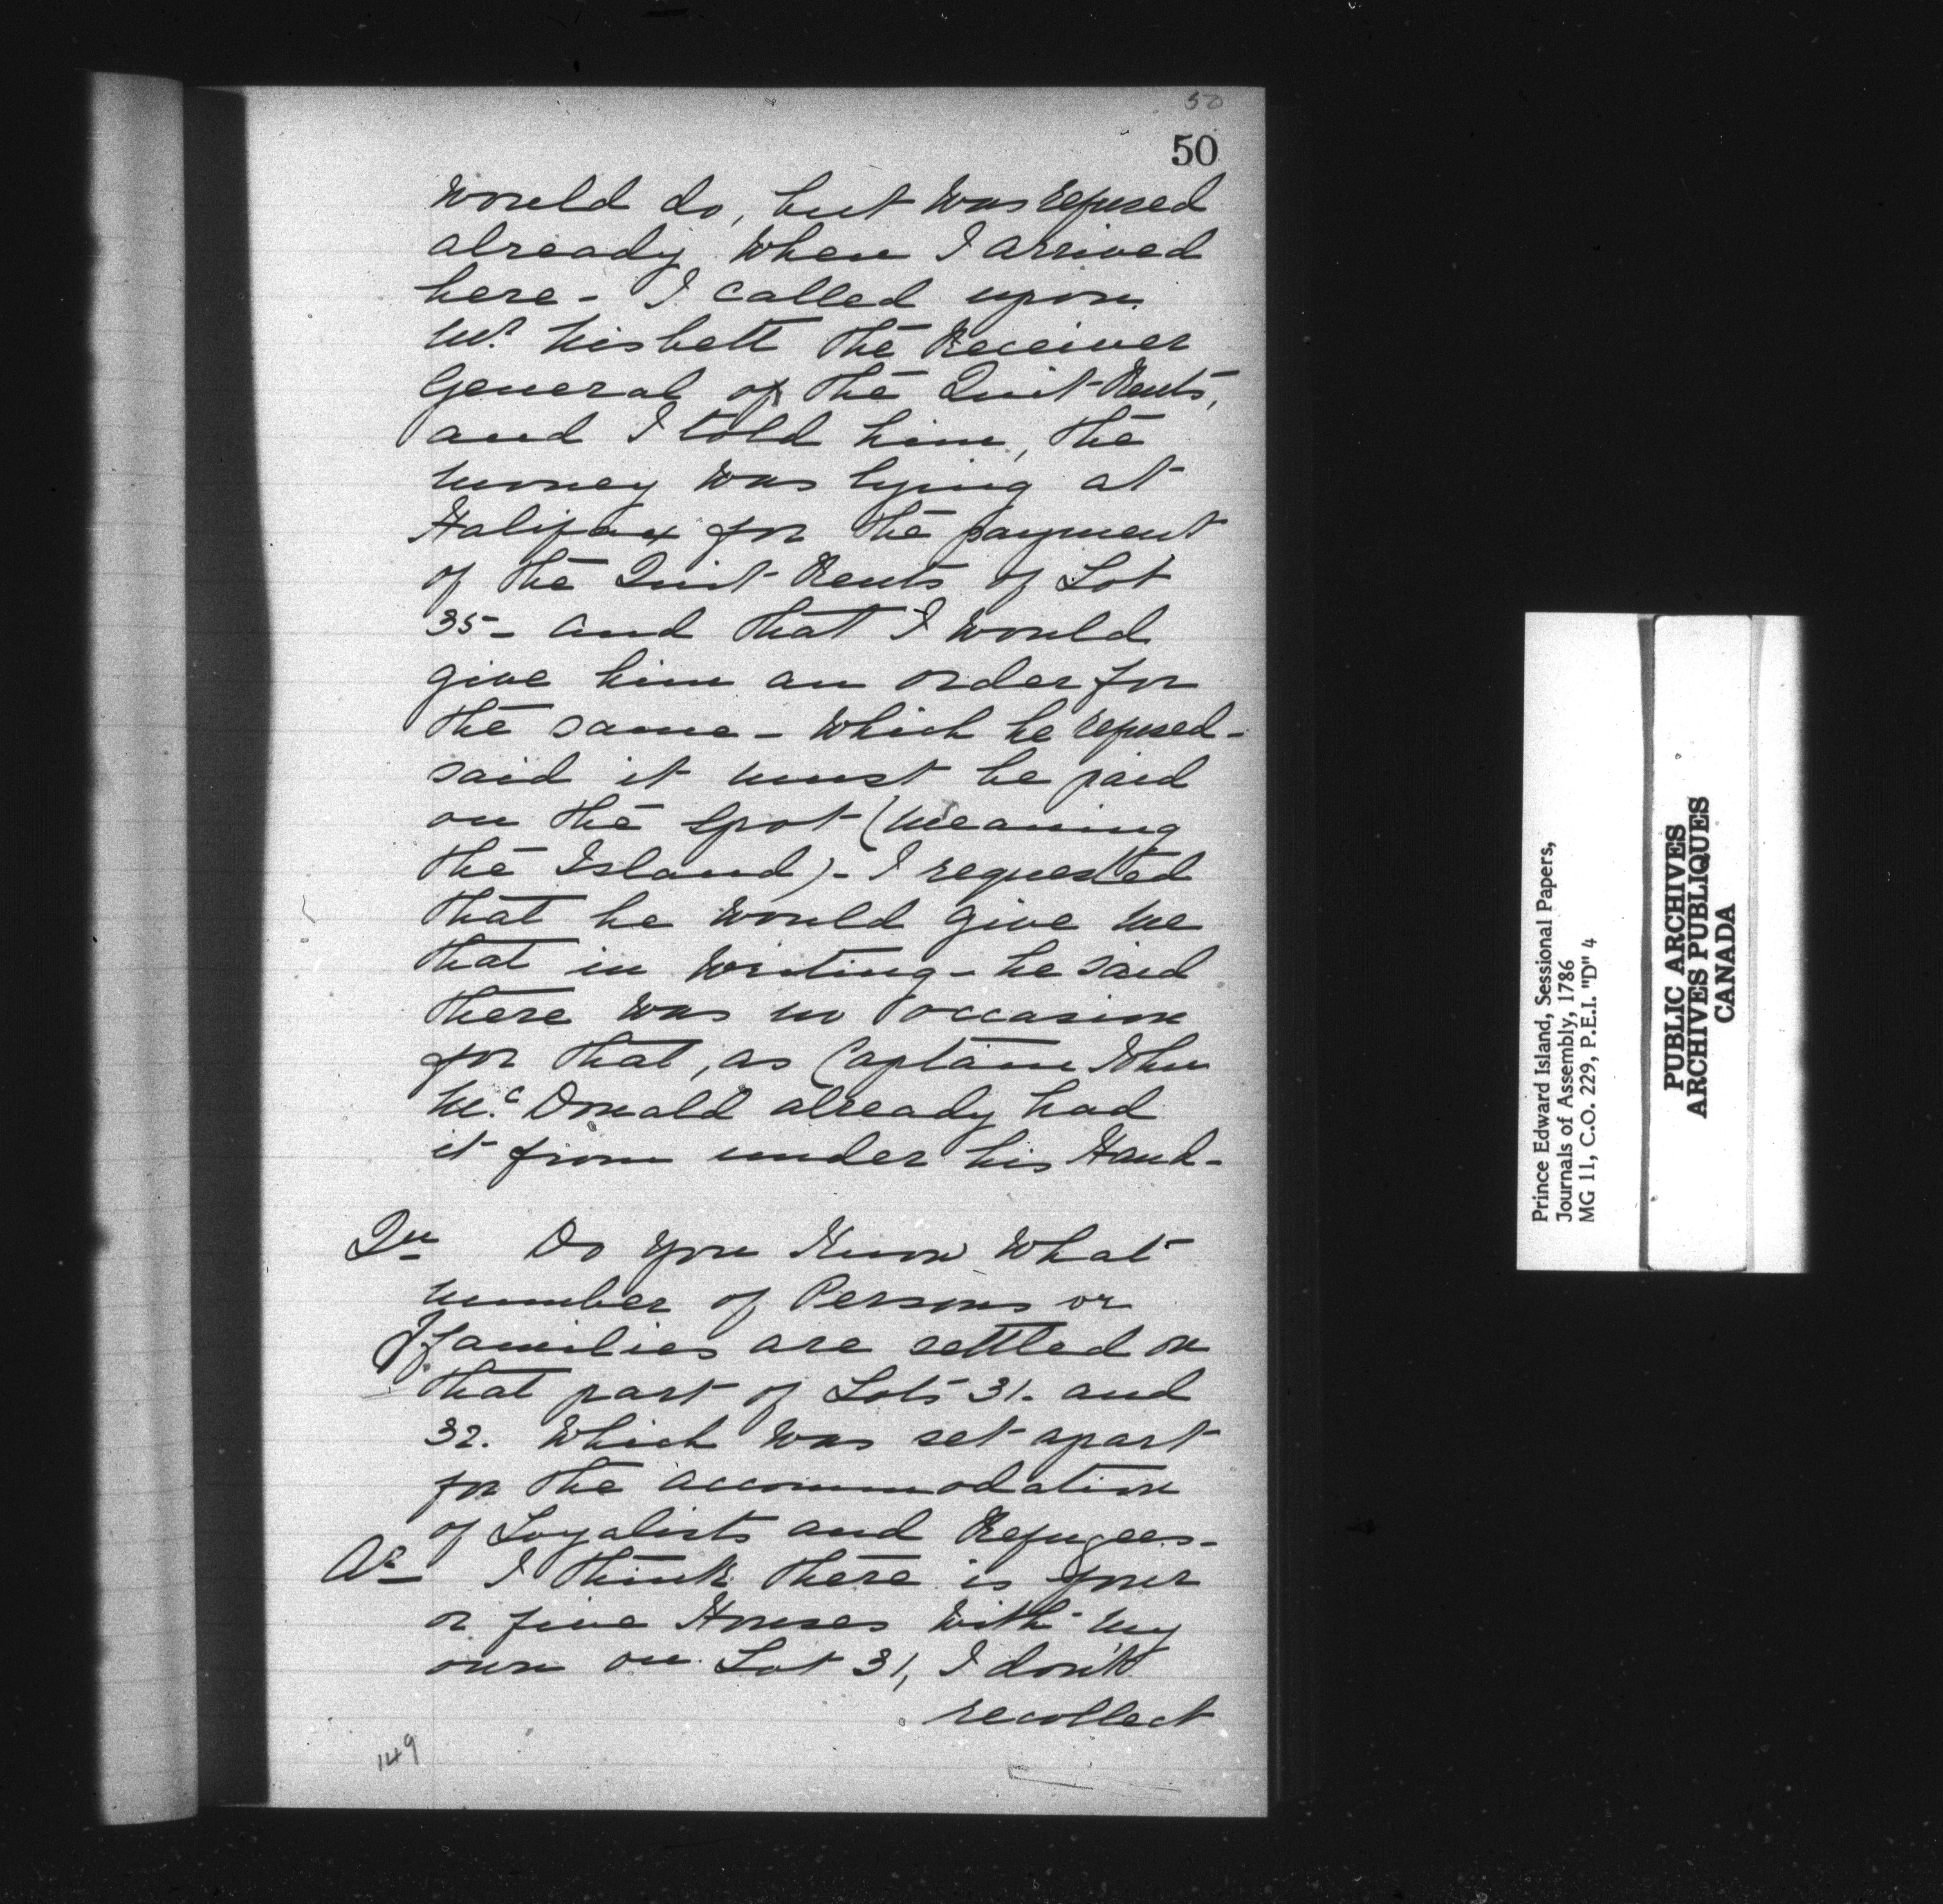 50
50
would do, but was refused
already when I arrived
here - I called upon
Mr. Nisbett the Receiver
General of the Quit-Rents,
and I told him, the
money was lying at
Halifax for the payment
of the Quit Rents of Lot
35 - and that I would
give him an order for
the same - which he refused -
said it must be paid
on the spot (meaning
the Island) - I requested
that he would give me
that in writing - he said
there was no occasion
for that, as Captain John
Mc. Donald already had
it from under his Hand -
Qu Do you Know what
number of Persons or
families are settled on
that part of Lots 31. and
32. which was set apart
for the accommodation
of Loyalists and Refugees -
Ar I think there is four
or five Houses with my
own on Lot 31, I don't
recollect
149
Prince Edward Island, Sessional Papers,
Journals of Assembly, 1786
MG 11, C.O. 229, P.E.I. "D" 4
PUBLIC ARCHIVES
ARCHIVES PUBLIQUES
CANADA